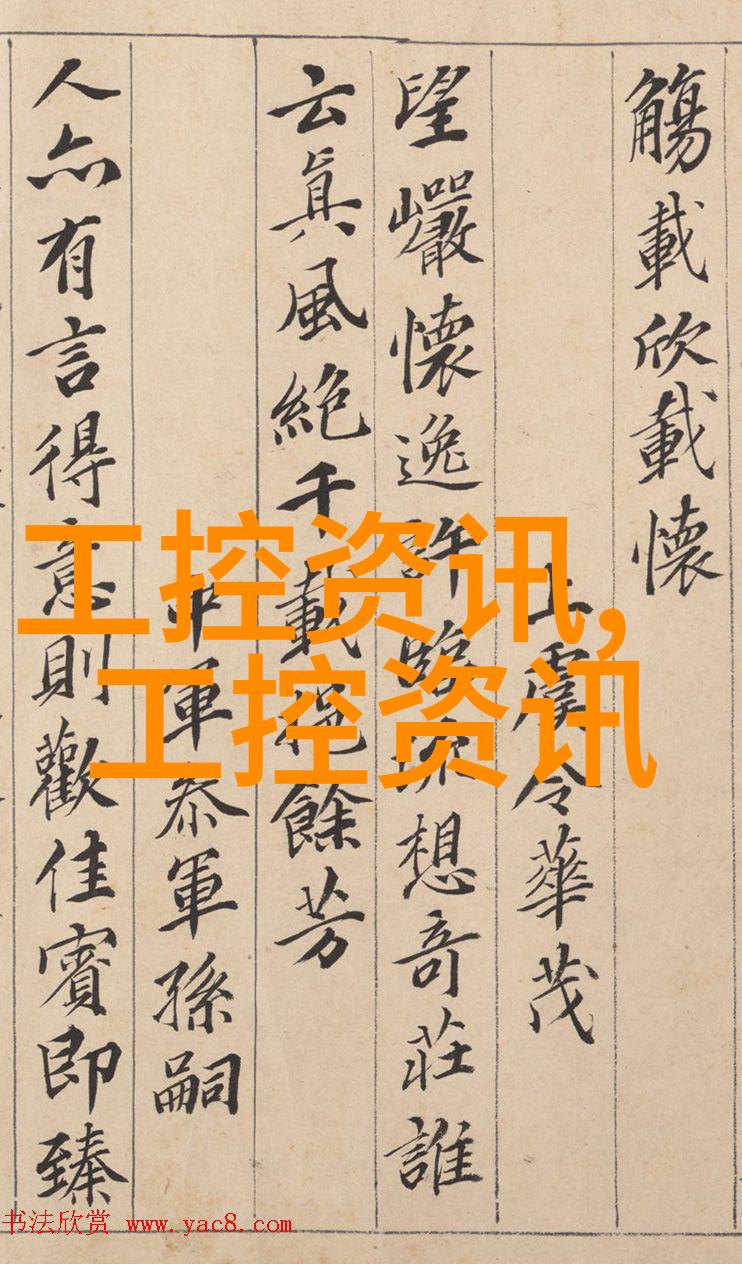 觴載欣載懷
上虞令華茂
望巖懷逸許臨流想奇莊誰
云眞風絕千載挹餘芳
中軍叅軍孫嗣
人亦有言得意則歡佳賓即臻
工控资讯,
工控资讯
书法欣赏 www.yac8.com